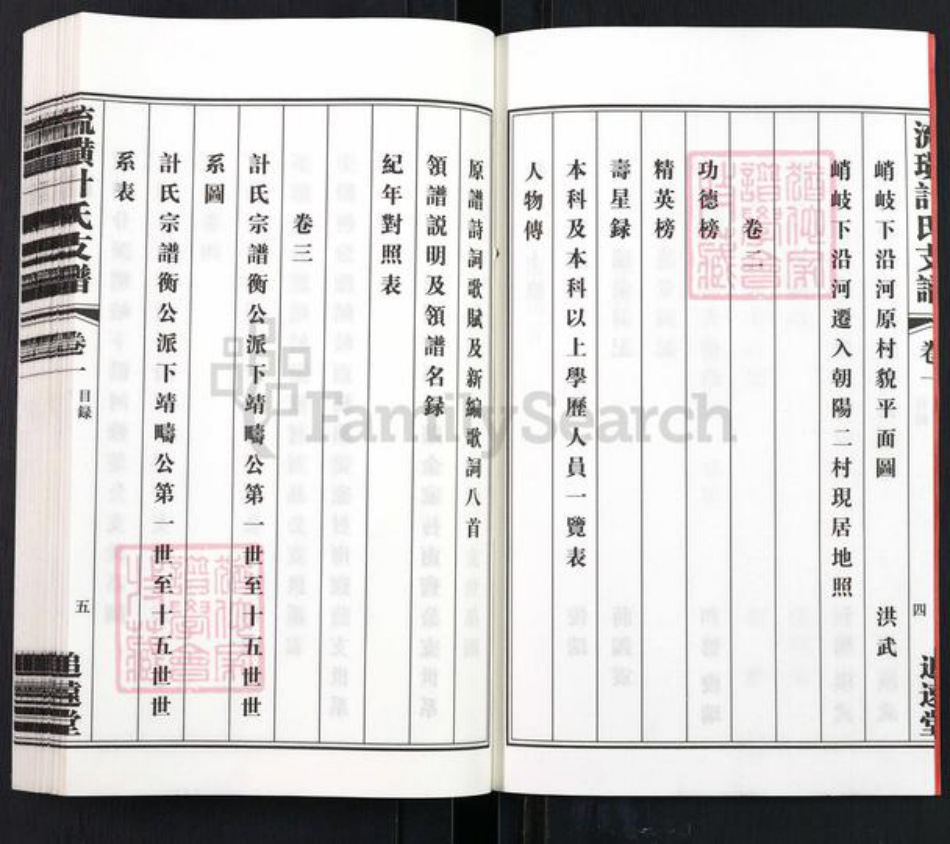 計氏支譜
四
峭岐下沿河原村貌平面圖 洪武
峭岐下沿河遷入朝陽二村現居地照
卷二
功德榜
精英榜
壽星録
本科及本科以上學歷人員一覽表
人物傳
原譜詩詞歌賦及新編歌詞八首
領譜説明及領譜名録
紀年對照表
卷三
計氏宗譜衡公派下靖疇公第一世至十五世世
系圖
計氏宗譜衡公派下靖疇公第一世至十五世世
系表
璜計氏支譜
卷一
目録
五
追遠堂
FamilySearch